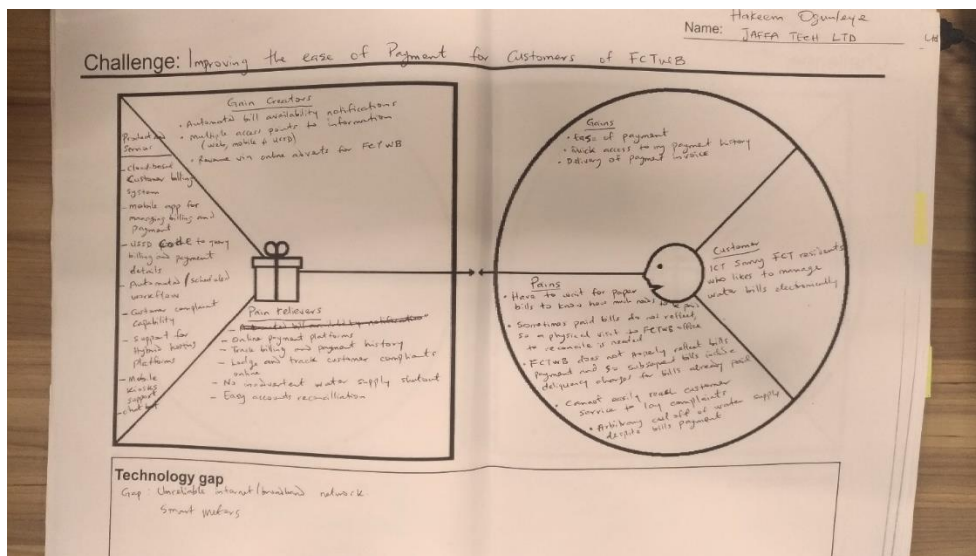 Hakeem Ogunleye
Name: JAFFA TECH LTD
Ltd
Challenge: Improving the ease of Payment for Customers of FCTWB
Gain Creators
• Automated bill availability notifications
• Multiple access points to information
(web, mobile & USSD)
• Revenue via online adverts for FCTWB
Product and
Services
- Cloud based
Customer billing
system
- mobile app for
managing billing and
payment
- USSD CODE to query
billing and payment
details
- Automated/scheduled
workflow
- Customer complaint
Capability
- Support for
Hybrid hosting
Platforms
- Mobile
Kiosks
support
- chat bot
Pain relievers
- Automated bill availability notification
- Online payment platforms
- Track billing and payment history
- Lodge and track customer complaints
online
- No inadvertent water supply shutout
- Easy accounts reconcilliation
Gains
• Ease of payment
• Quick access to my payment history
• Delivery of payment invoice
Customer
ICT Savvy FCT residents
who likes to manage
water bills electronically
Pains
• Have to wait for paper
bills to know how much needs to be paid
• Sometimes paid bills do not reflect,
so a physical visit to FCTWB office
to reconcile is needed
• FCTWB does not properly reflect bills
payment and so subsequent bills include
delinquency charges for bills already paid
• Cannot easily reach customer
service to lay complaints
• Arbitrary cut off of water supply
despite bills payment
Technology gap
Gap: Unreliable internet/broadband network
Smart meters